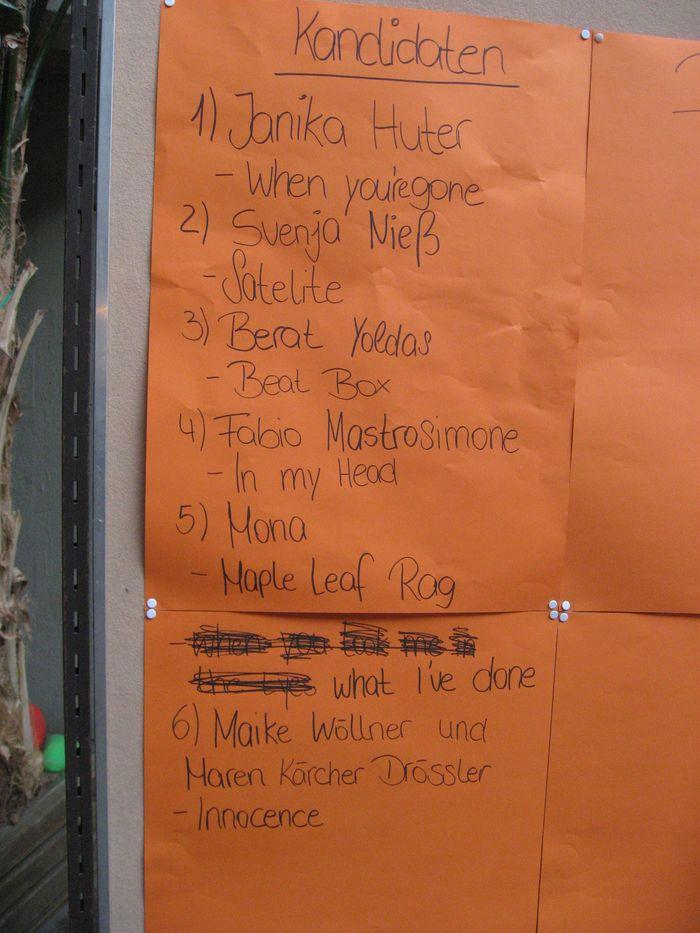 Kandidaten
1) Janika Huter
- When you're gone
2) Svenja Nieß
- Satelite
3) Berat Yoldas
- Beat Box
4) Fabio Mastrosimone
- In my Head
5) Mona
- Maple Leaf Rag
- When you look me in
the eyes what I've done
6) Maike Wöllner und
Maren Kärcher Drössler
- Innocence